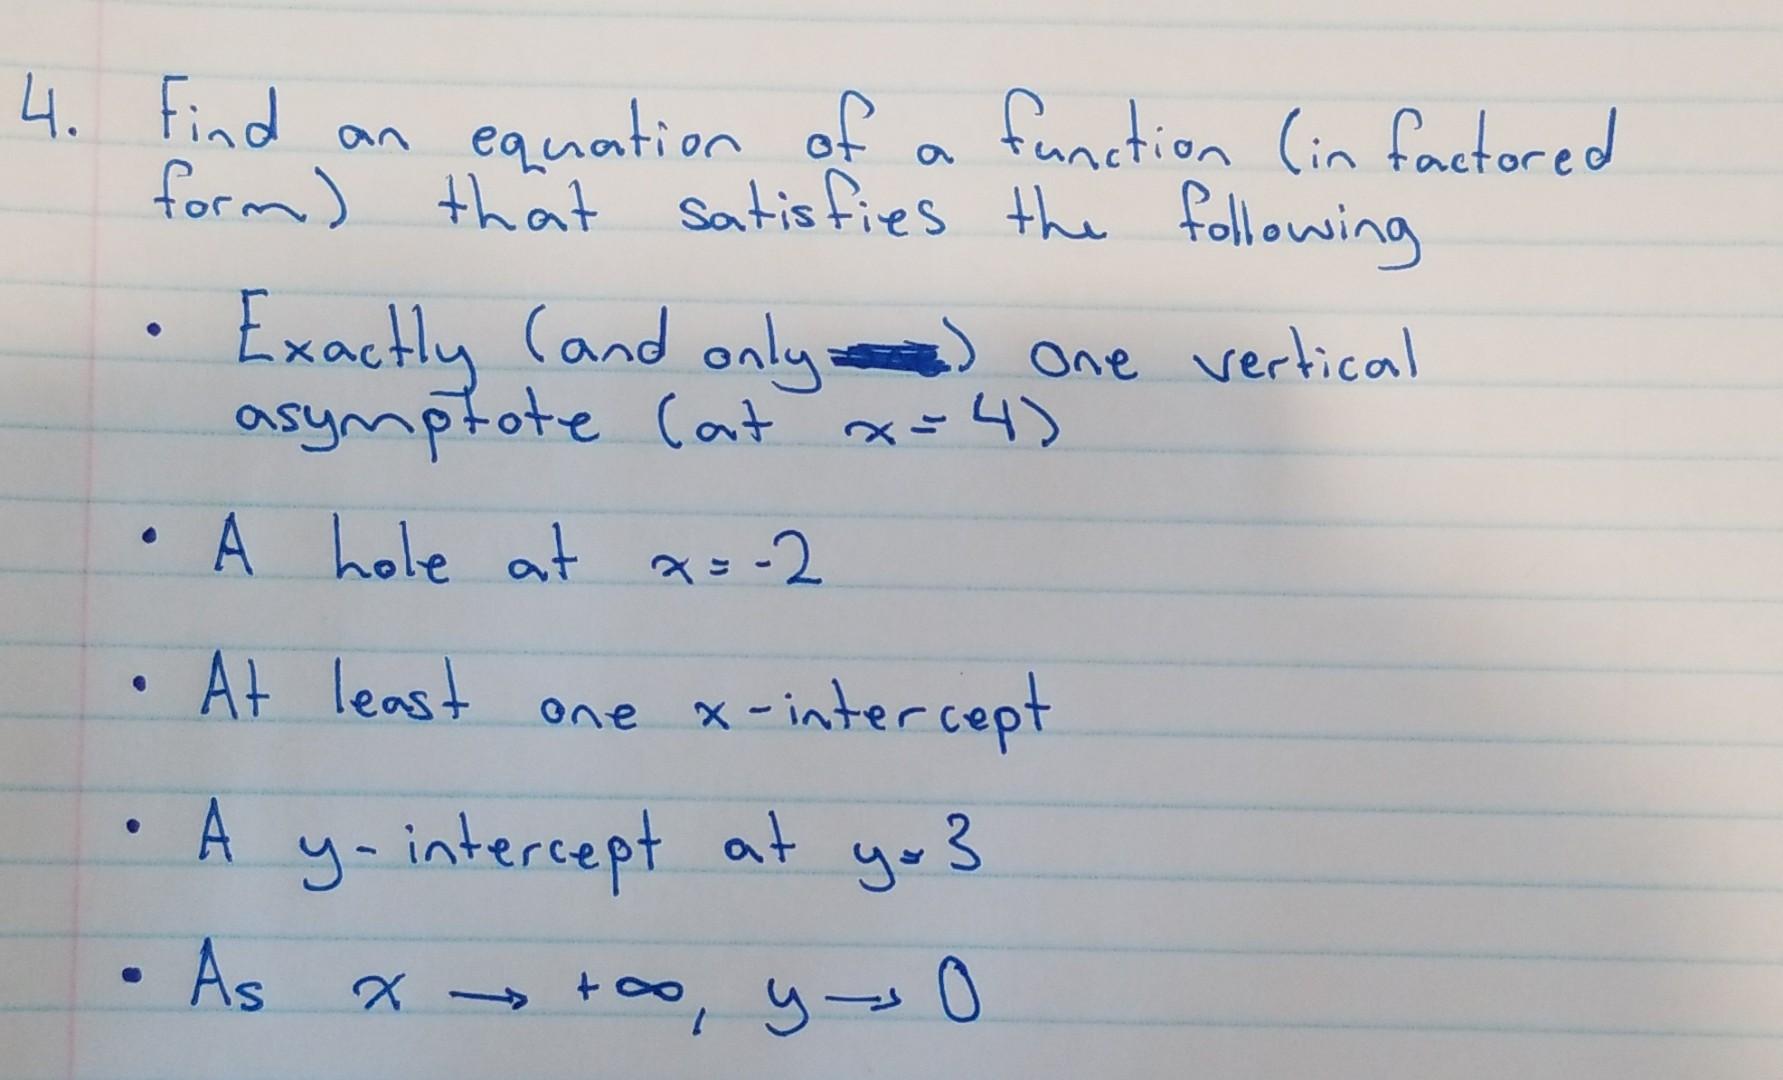 4. Find an equation of a function (in factored
form) that satisfies the following
• Exactly (and only) one vertical
asymptote (at x = 4)
• A hole at x = -2
• At least one x-intercept
• A y-intercept at y = 3
• As x → +∞, y → 0